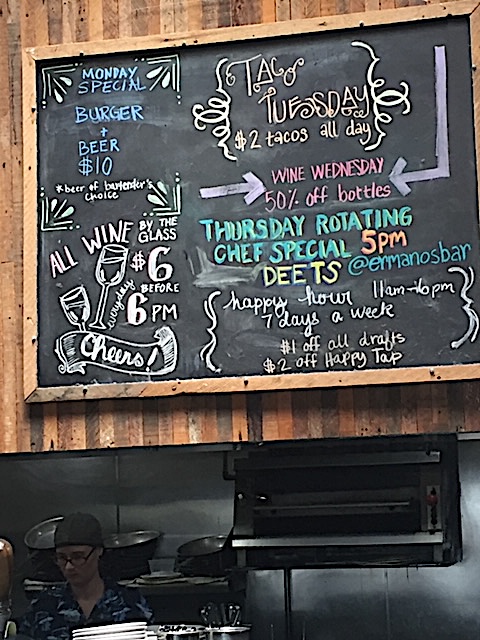 MONDAY
SPECIAL
BURGER
+
BEER
$10
*beer of bartender's
choice
ALL WINE BY THE
GLASS
$6
everyday
BEFORE
6 PM
Cheers!
TACO
TUESDAY
$2 tacos all day
WINE WEDNESDAY
50% off bottles
THURSDAY ROTATING
CHEF SPECIAL 5pm
DEETS @ermanosbar
happy hour 11am-6pm
7 days a week
$1 off all drafts
$2 off Happy Tap